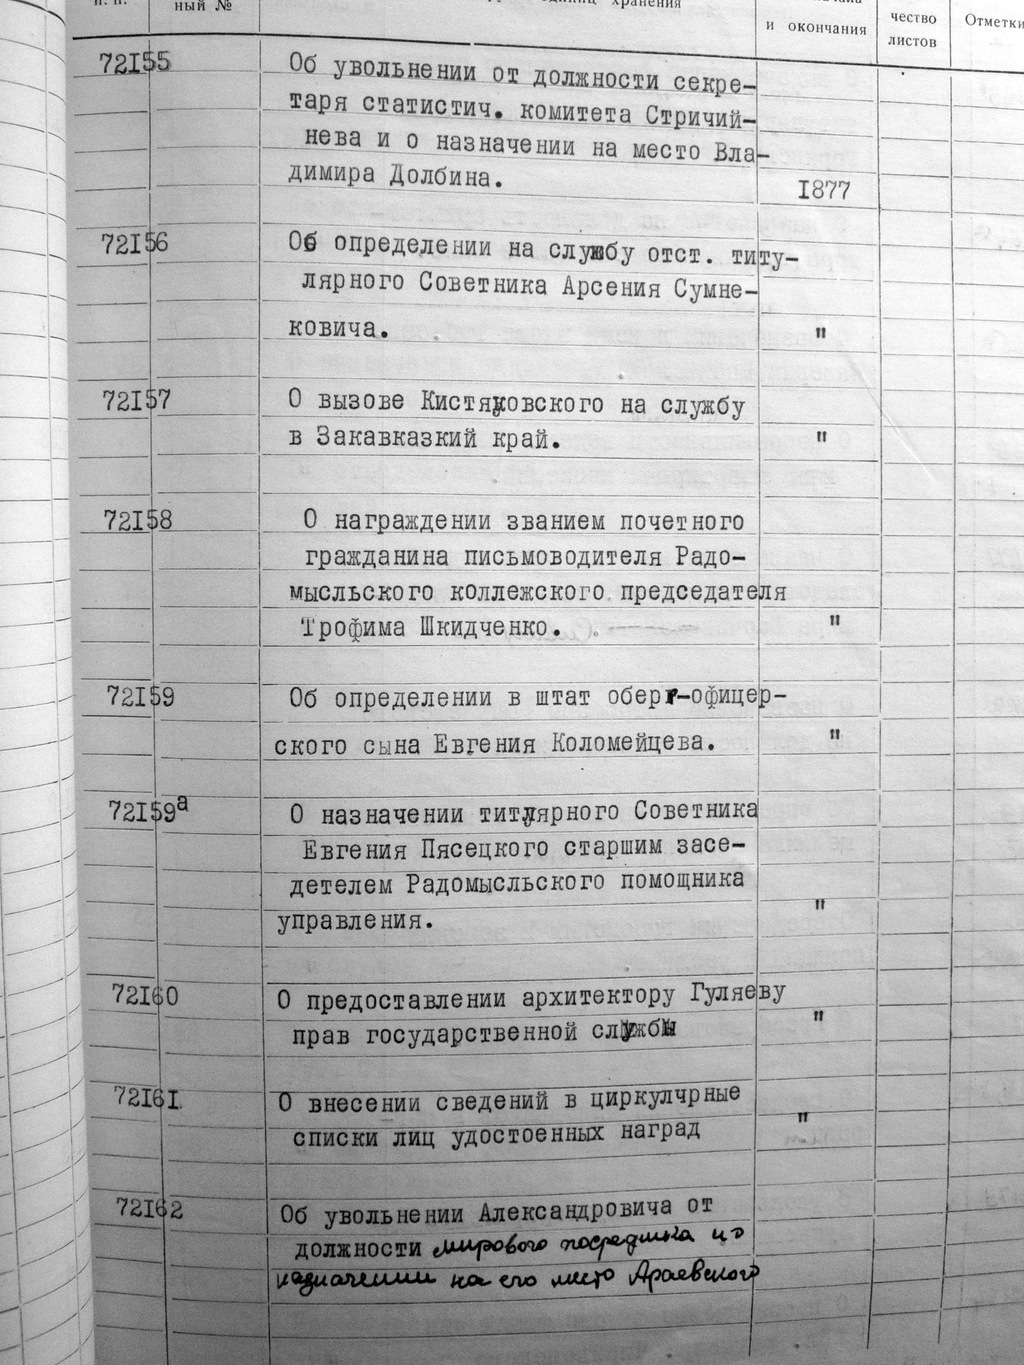 ный №
хранения
и окончания
чество
листов
Отметки
72I55
Об увольнении от должности секре-
таря статистич. комитета Стричий-
нева и о назначении на место Вла-
димира Долбина.
I877
72I56
Об определении на службу отст. титу-
лярного Советника Арсения Сумне-
ковича.
"
72I57
О вызове Кистяковского на службу
в Закавказкий край.
"
72I58
О награждении званием почетного
гражданина письмоводителя Радо-
мысльского коллежского председателя
Трофима Шкидченко.
"
72I59
Об определении в штат обер-офицер-
ского сына Евгения Коломейцева.
"
72I59а
О назначении титулярного Советника
Евгения Пясецкого старшим засе-
детелем Радомысльского помощника
управления.
"
72I60
О предоставлении архитектору Гуляеву
прав государственной службы
"
72I61
О внесении сведений в циркулчрные
списки лиц удостоенных наград
"
72I62
Об увольнении Александровича от
должности мирового посредника и о
назначении на его место Араевского